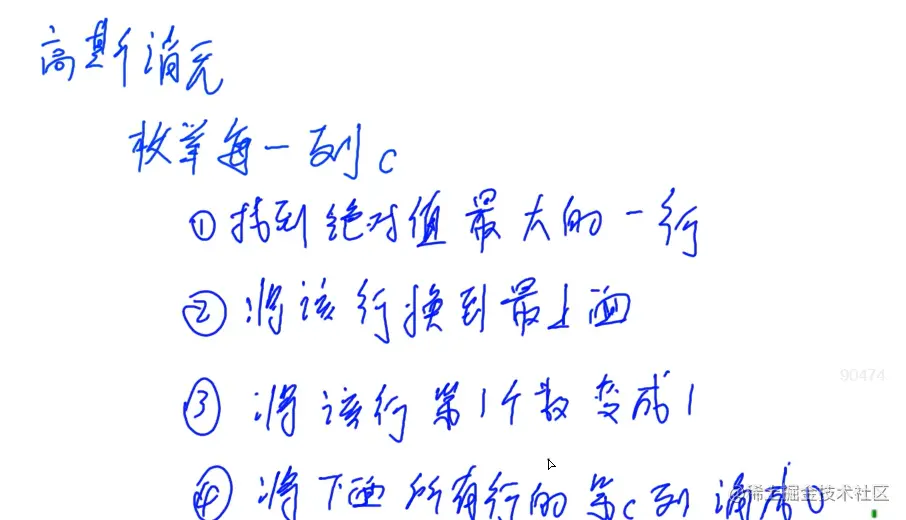 高斯消元
枚举每一列c
① 找到绝对值最大的一行
② 将该行换到最上面
90474
③ 将该行第1个数变成1
④ 将下面所有行的第c列消成0
@稀土掘金技术社区